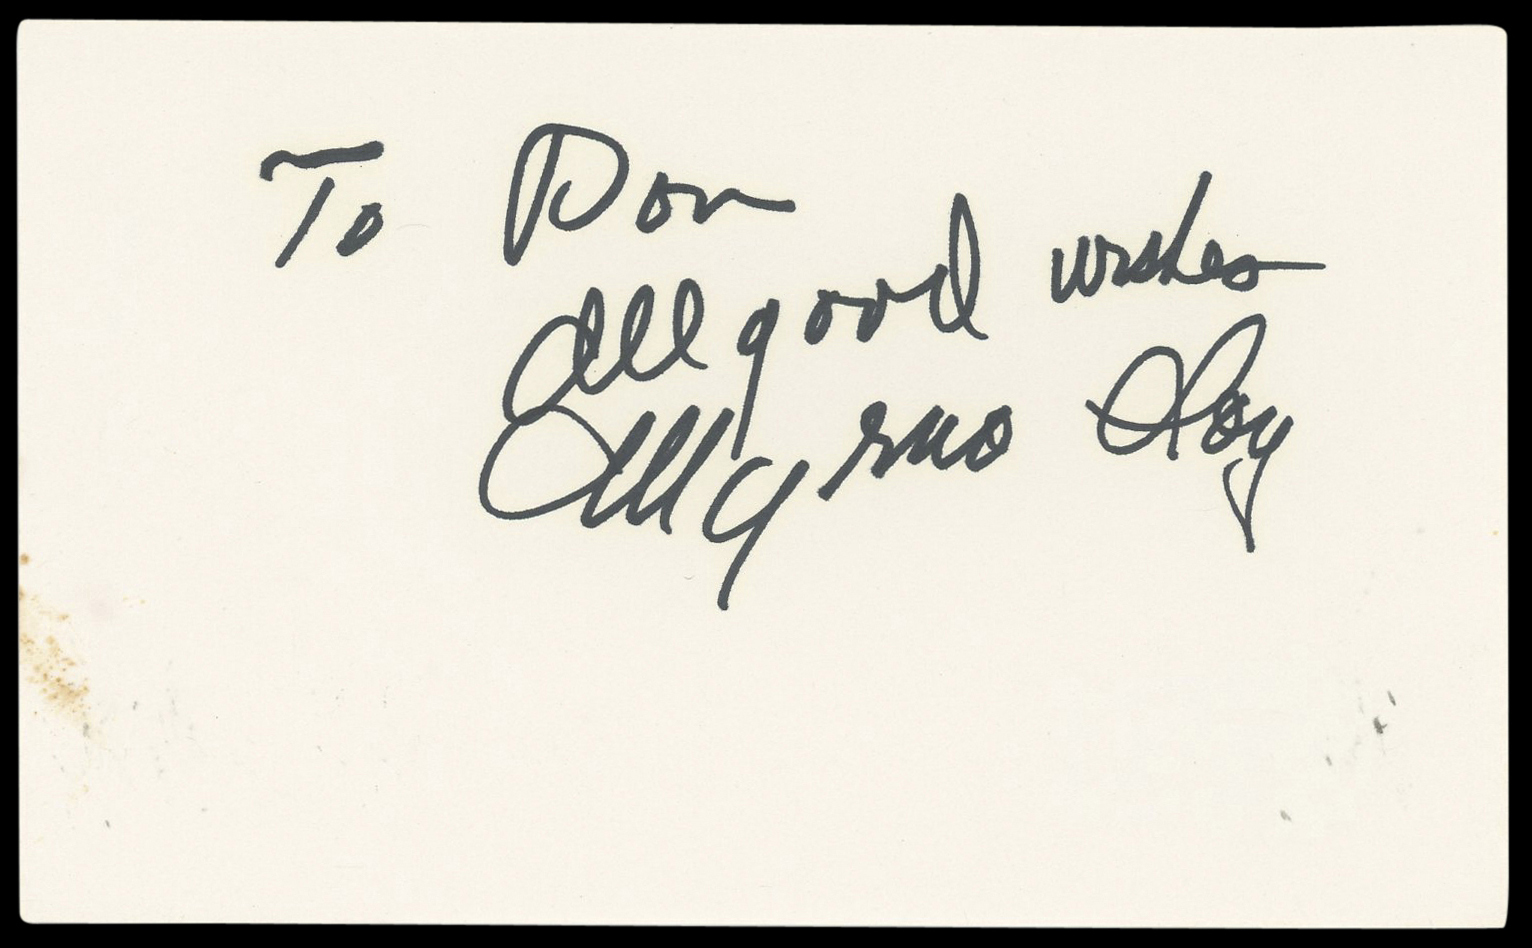 To Don
All good wishes
Myrna Loy